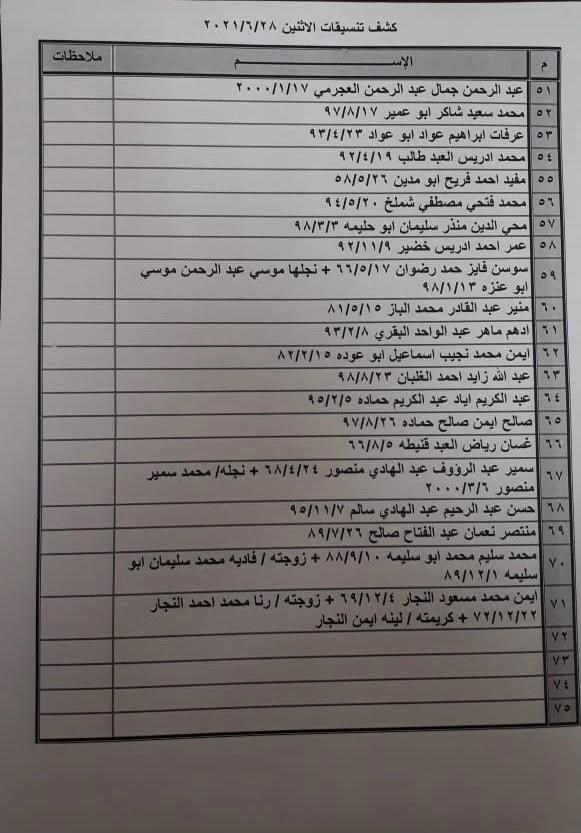 كشف تنسيقات الاثنين ٢٠٢١/٦/٢٨
م الإســـــــــم ملاحظات
٥١ عبد الرحمن جمال عبد الرحمن العجرمي ٢٠٠٠/١/١٧
٥٢ محمد سعيد شاكر ابو عمير ٩٧/٨/١٧
٥٣ عرفات ابراهيم عواد ابو عواد ٩٣/٤/٢٣
٥٤ محمد ادريس العبد طالب ٩٢/٤/١٩
٥٥ مفيد احمد فريح ابو مدين ٥٨/٥/٢٦
٥٦ محمد فتحي مصطفي شملخ ٩٤/٥/٢٠
٥٧ محي الدين منذر سليمان ابو حليمه ٩٨/٣/٣
٥٨ عمر احمد ادريس خضير ٩٢/١١/٩
٥٩ سوسن فايز حمد رضوان ٦٦/٥/١٧ + نجلها موسي عبد الرحمن موسي
ابو عنزه ٩٨/١/١٣
٦٠ منير عبد القادر محمد الباز ٨١/٥/١٥
٦١ ادهم ماهر عبد الواحد البقري ٩٣/٢/٨
٦٢ ايمن محمد نجيب اسماعيل ابو عوده ٨٢/٢/١٥
٦٣ عبد الله زايد احمد الغلبان ٩٨/٨/٢٣
٦٤ عبد الكريم اياد عبد الكريم حماده ٩٥/٢/٥
٦٥ صالح ايمن صالح حماده ٩٧/٨/٢٦
٦٦ غسان رياض العبد قنيطه ٦٦/٨/٥
٦٧ سمير عبد الرؤوف عبد الهادي منصور ٦٨/٤/٢٤ + نجله/ محمد سمير
منصور ٢٠٠٠/٣/٦
٦٨ حسن عبد الرحيم عبد الهادي سالم ٩٥/١١/٧
٦٩ منتصر نعمان عبد الفتاح صالح ٨٩/٧/٢٦
٧٠ محمد سليم محمد ابو سليمه ٨٨/٩/١٠ + زوجته / فاديه محمد سليمان ابو
سليمه ٨٩/١٢/١
٧١ ايمن محمد مسعود النجار ٦٩/١٢/٤ + زوجته / رنا محمد احمد النجار
٧٢/١٢/٢٢ + كريمته / لينه ايمن النجار
٧٢
٧٣
٧٤
٧٥